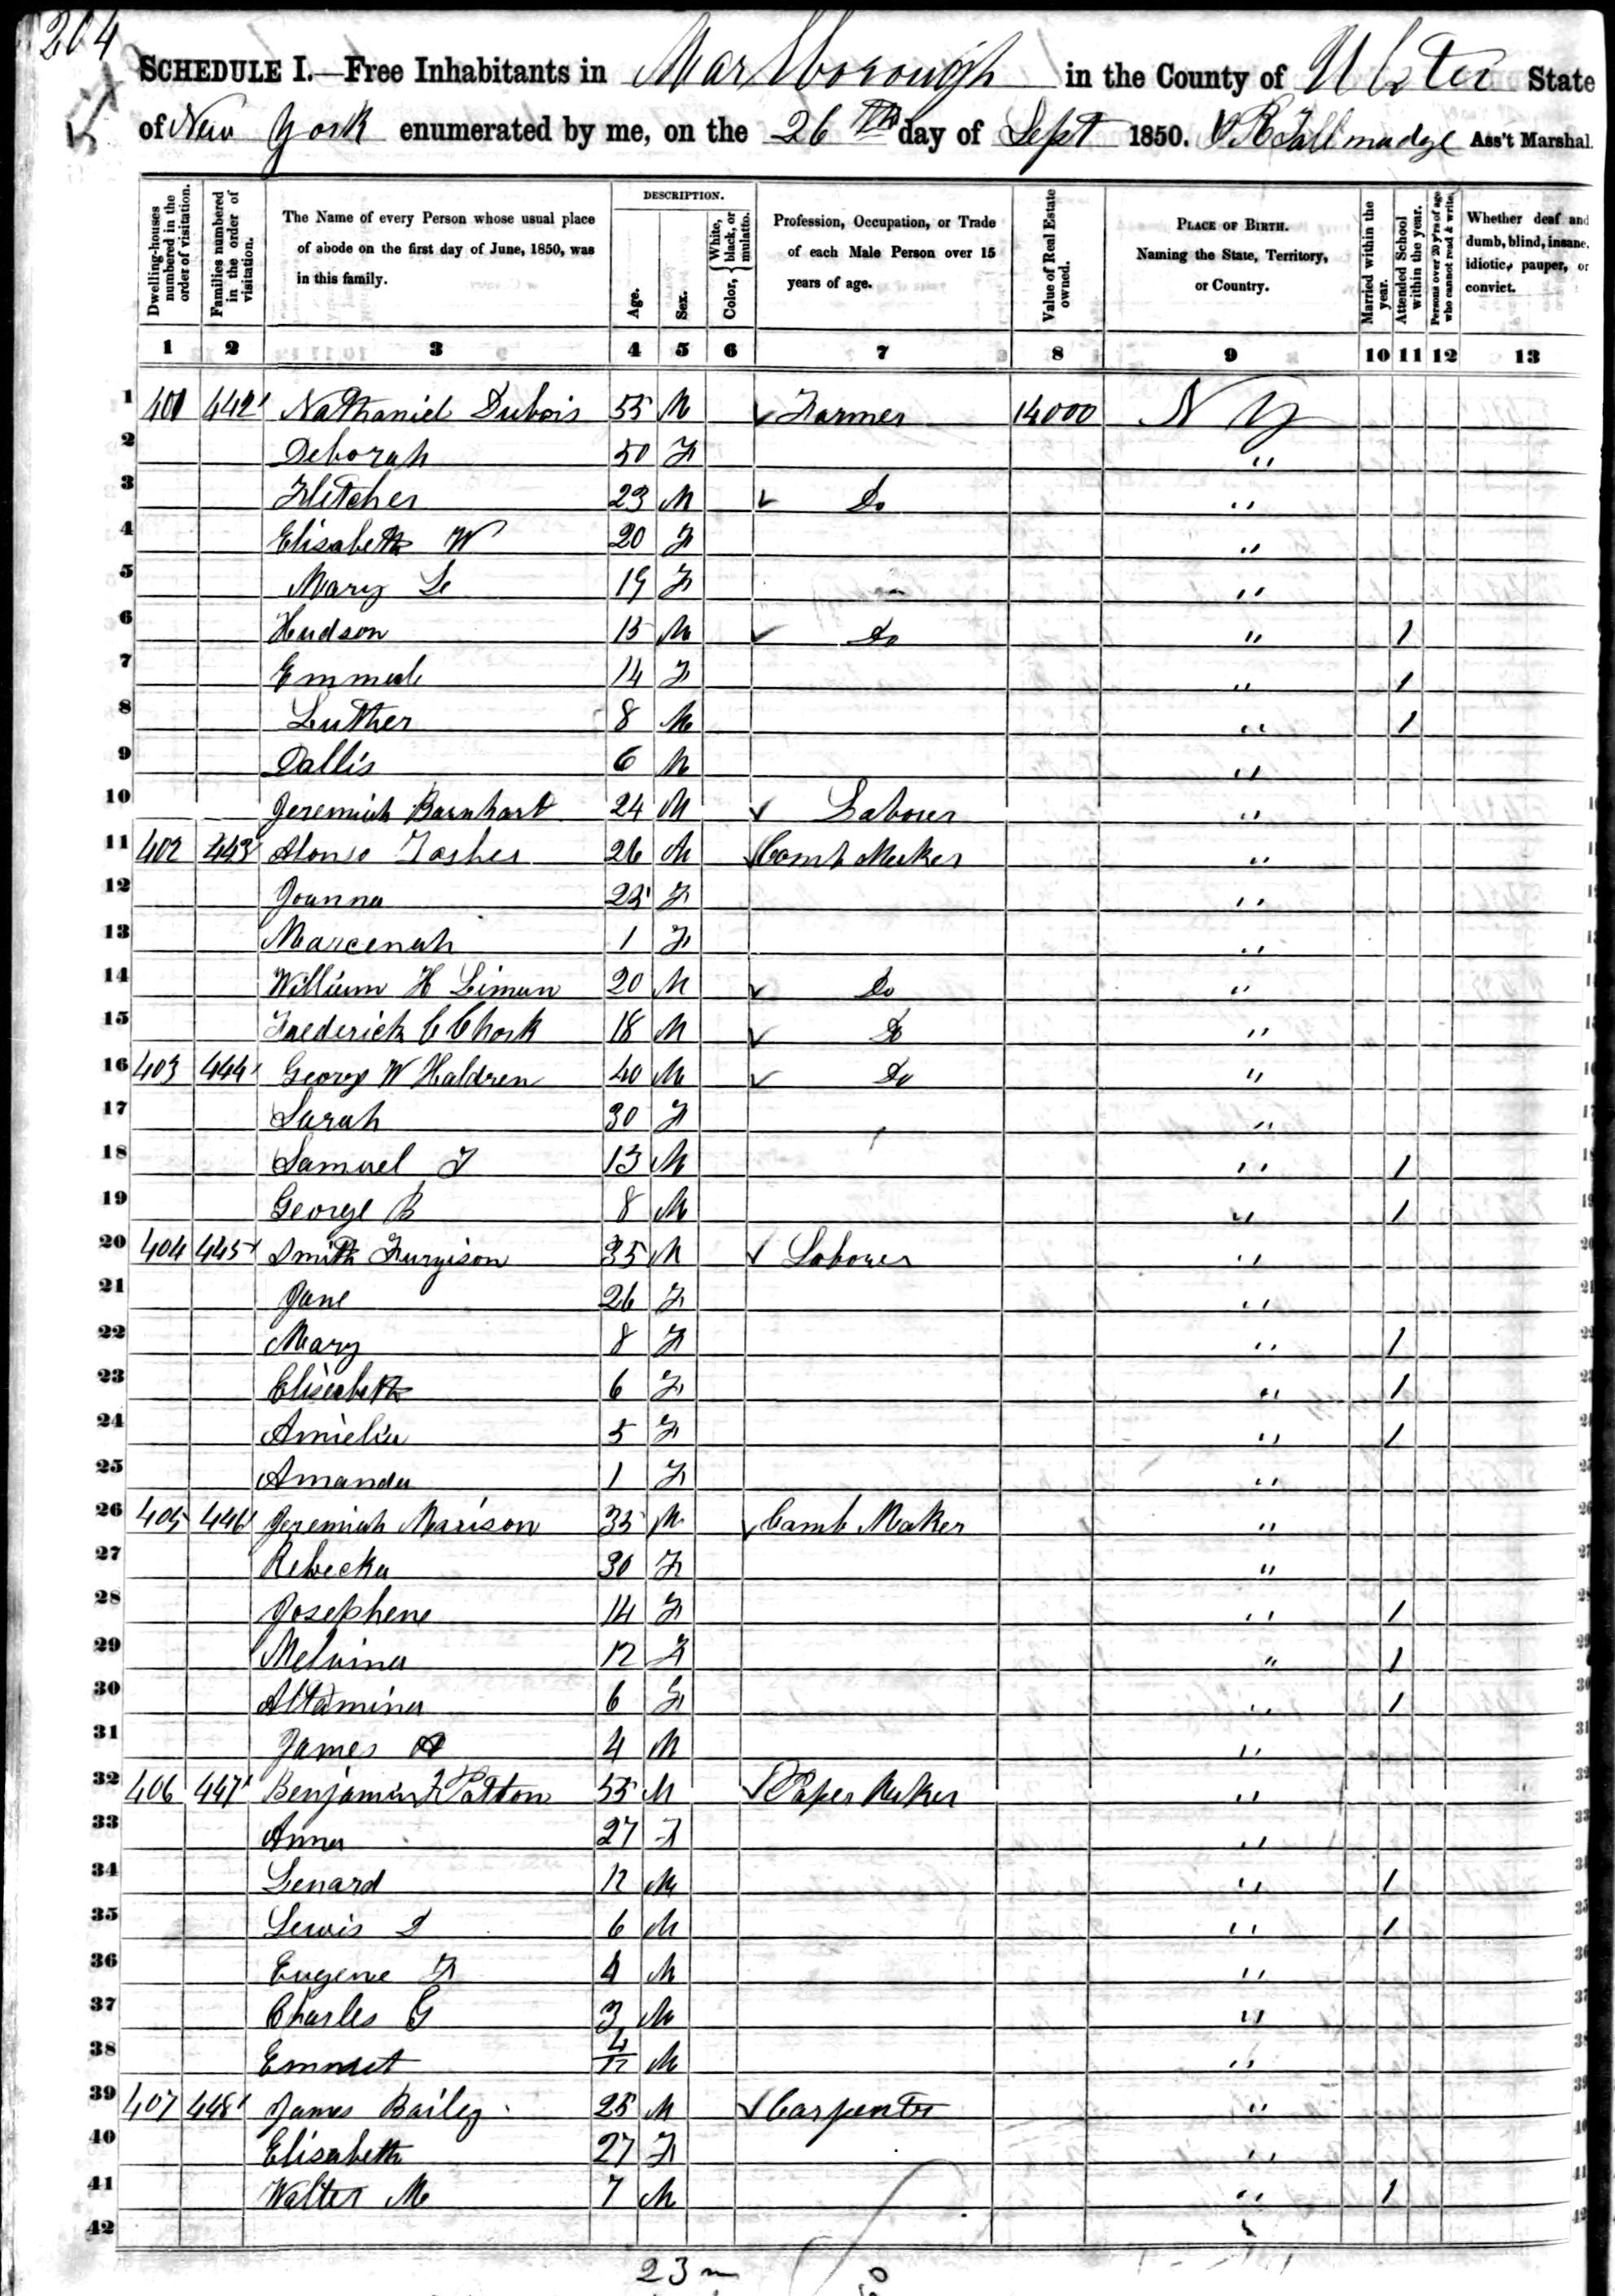 204
SCHEDULE I.—Free Inhabitants in Marlborough in the County of Ulster State
of New York enumerated by me, on the 26th day of Sept 1850. Tallmadge Ass't Marshal.
Dwelling-houses numbered in the order of visitation.
Families numbered in the order of visitation.
The Name of every Person whose usual place of abode on the first day of June, 1850, was in this family.
DESCRIPTION.
Age.
Sex.
Color, { White, black, or mulatto.
Profession, Occupation, or Trade of each Male Person over 15 years of age.
Value of Real Estate owned.
PLACE OF BIRTH. Naming the State, Territory, or Country.
Married within the year.
Attended School within the year.
Persons over 20 y'rs of age who cannot read & write.
Whether deaf and dumb, blind, insane, idiotic, pauper, or convict.
1 2 3 4 5 6 7 8 9 10 11 12 13
1 401 442 Nathaniel Dubois 55 M Farmer 14000 N Y
2 Deborah 50 F "
3 Fletcher 23 M Do "
4 Elisabeth W 20 F "
5 Mary 19 F "
6 Hudson 15 M Do " 1
7 14 F " 1
8 Luther 8 M " 1
9 Dallis 6 M "
10 Jeremiah Barnhart 24 M Laborer "
11 402 443 Alonso 26 M Comb Maker "
12 Joanna 25 F "
13 Marcenah 1 F "
14 William H Liman 20 M Do "
15 Frederick C 18 M Do "
16 403 444 George W Haldren 40 M Do "
17 Sarah 30 F "
18 Samuel T 13 M " 1
19 George B 8 M " 1
20 404 445 Smith Furgison 35 M Laborer "
21 Jane 26 F "
22 Mary 8 F " 1
23 Elisabeth 6 F " 1
24 Amielia 5 F " 1
25 Amanda 1 F "
26 405 446 Jeremiah Marison 35 M Comb Maker "
27 Rebecka 30 F "
28 Josephene 14 F " 1
29 Melvina 12 F " 1
30 Altamina 6 F " 1
31 James 4 M "
32 406 447 Benjamin F Patton 55 M Paper Maker "
33 Anna 27 F "
34 Lenard 12 M " 1
35 Lewis 6 M " 1
36 Eugene F 4 M "
37 Charles G 3 M "
38 Emmet 4/12 M "
39 407 448 James Baily 28 M Carpenter "
40 Elisabeth 27 F "
41 Walter M 7 M " 1
42
23 m